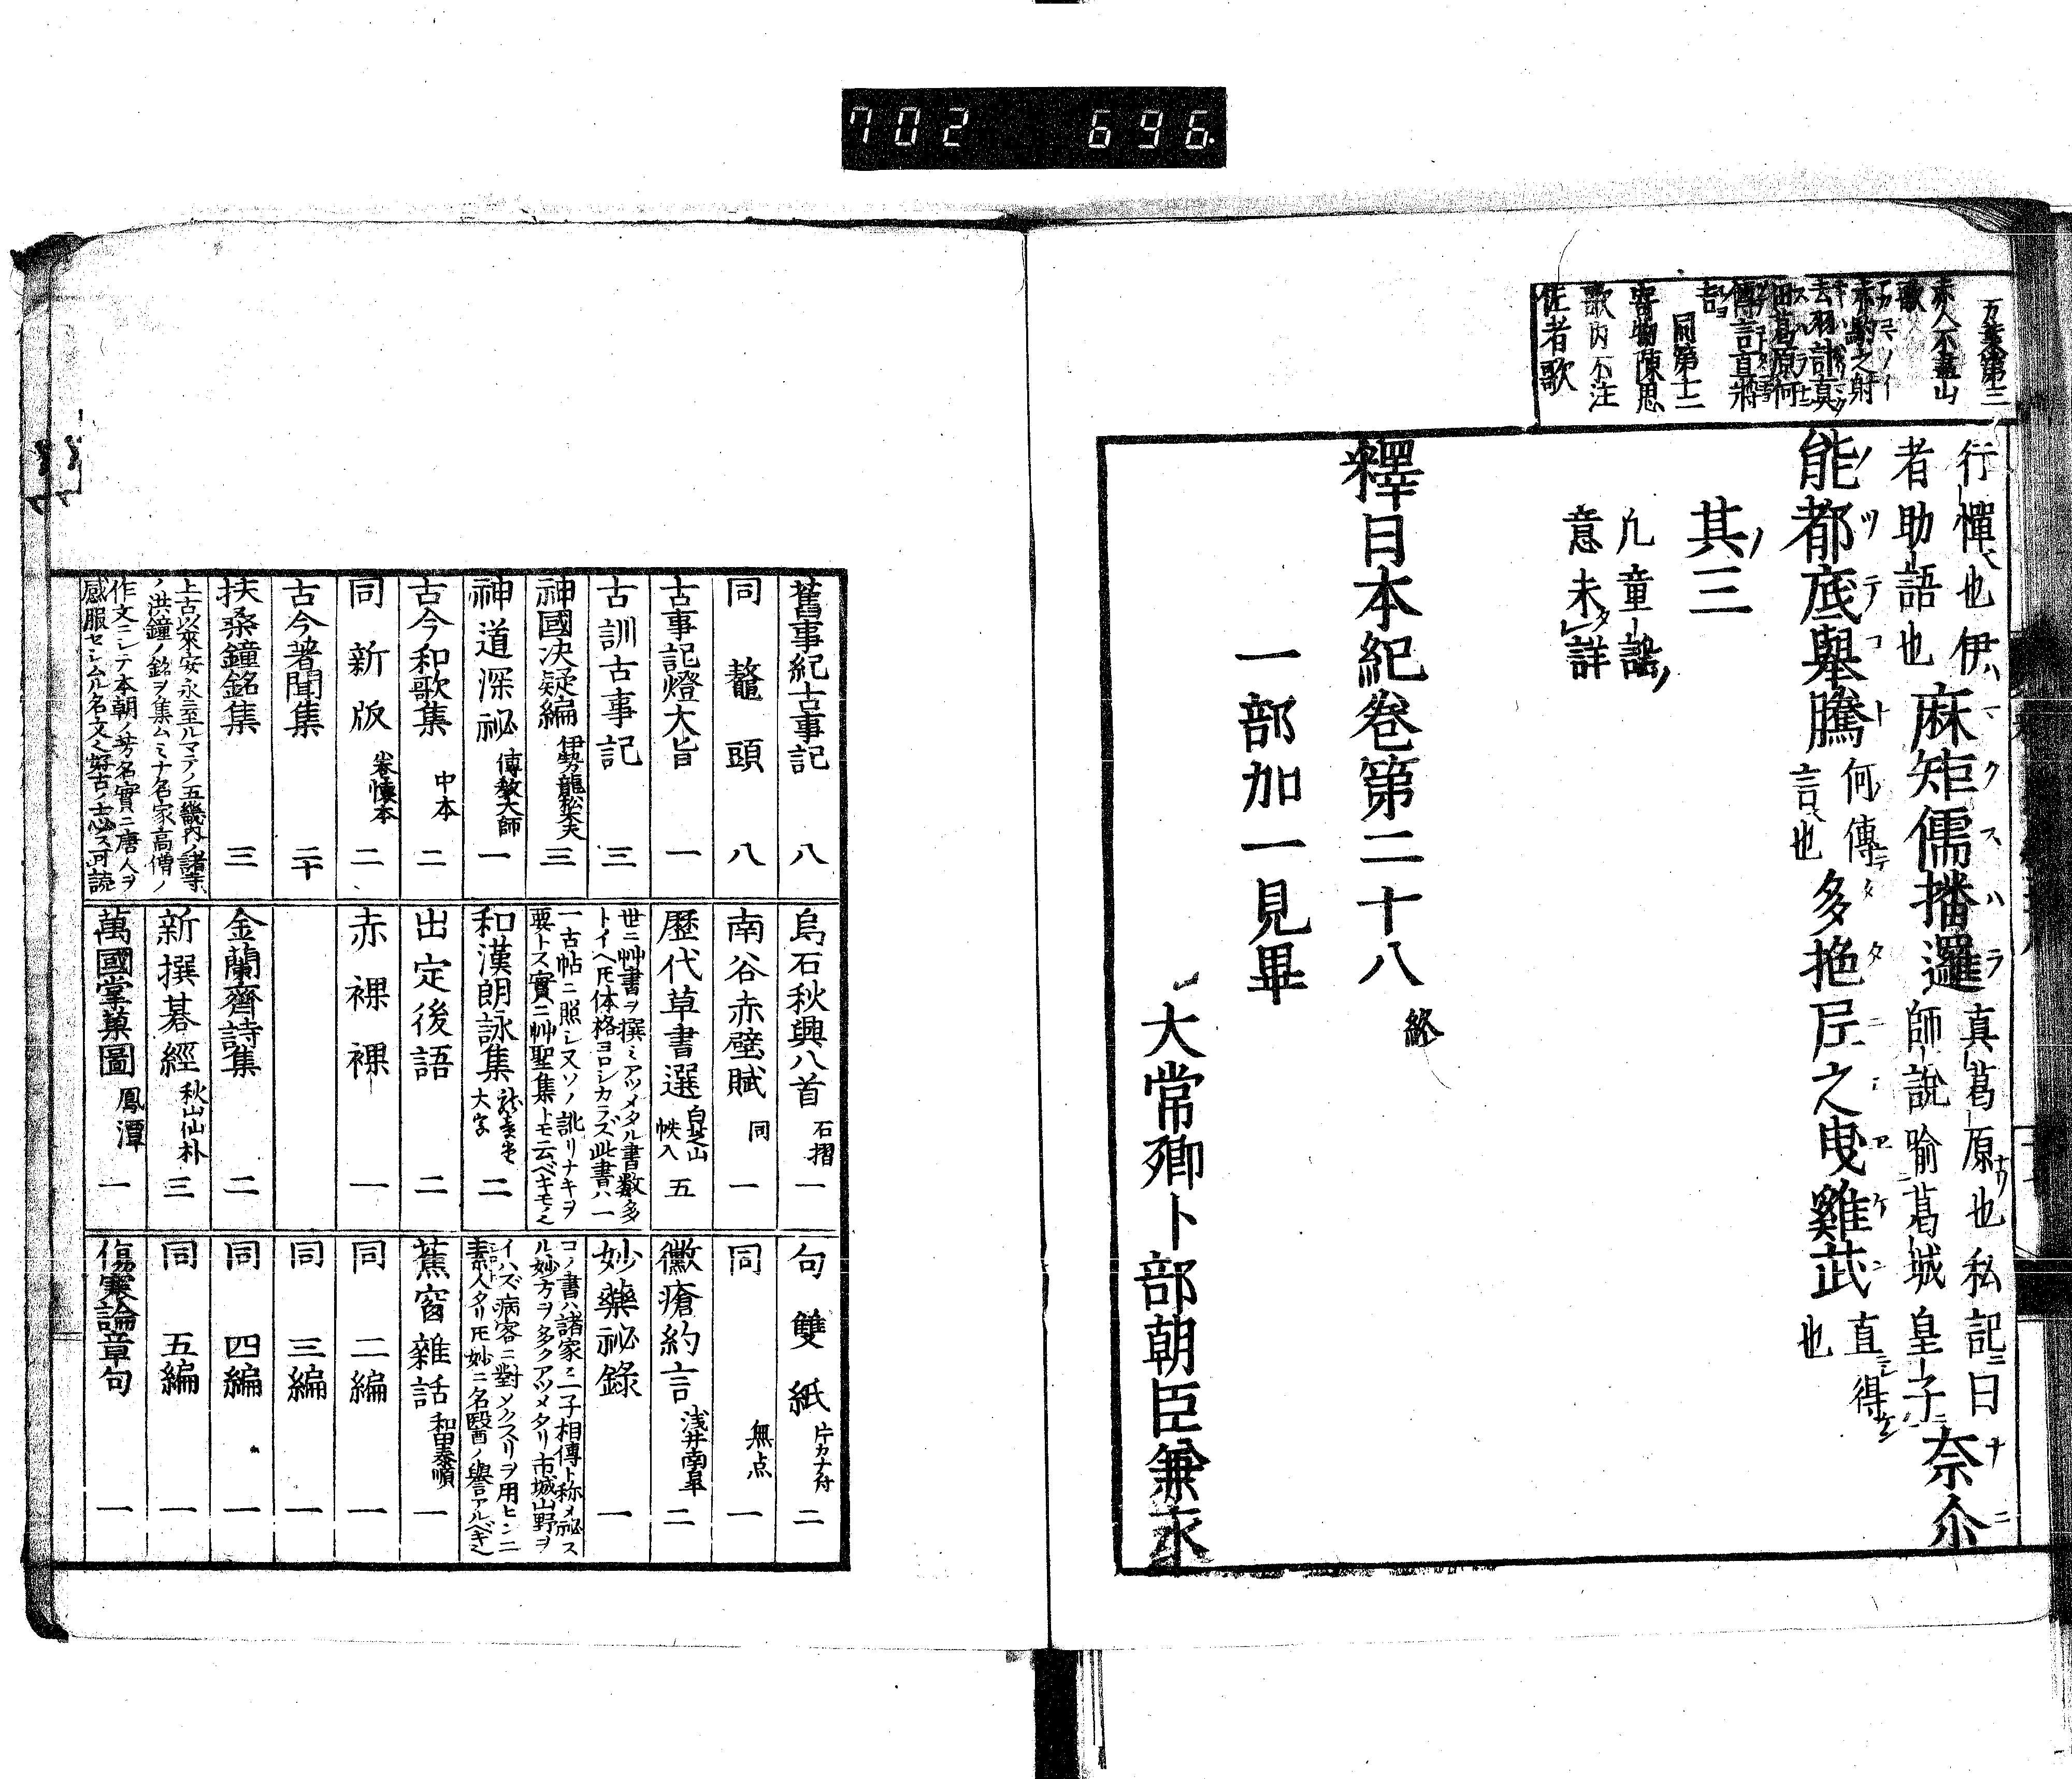 702 696
万葉第三
赤人不盡山
歌
赤駒之射
去羽計真
田葛原何
傳言直將
吉
同第十二
寄物陳思
歌内不注
作者歌
行憚也伊麻矩儒播邏真葛原也私記曰奈尒
者助語也師説喻葛城皇子
能都底擧騰何傳言也多拖尼之曳雞武直得也
其三
凡童謡
意未詳
釋日本紀卷第二十八終
一部加一見畢
大常卿卜部朝臣兼永
舊事紀古事記 八
同 鼇頭 八
古事記燈大旨 一
古訓古事記 三
神國决疑編 伊勢龍松夫 三
神道深祕 傳教大師 一
古今和歌集 中本 二
同 新版 二
古今著聞集 二十
扶桑鐘銘集 三
上古以來安永ニ至ルマテノ五畿内ノ諸寺
ノ洪鐘ノ銘ヲ集ムミナ名家高僧ノ
作文ニシテ本朝ノ芳名實ニ唐人ヲ
感服セシムル名文
烏石秋興八首 石摺 一
南谷赤壁賦 同 一
歷代草書選 白芝山 帙入 五
世ニ艸書ヲ撰ミアツメタル書数多
トイヘ𪜈体格ヨロシカラズ此書ハ一
一古帖ニ照シ又ソノ訛リナキヲ
要トス實ニ艸聖集トモ云ベキモノ也
和漢朗詠集 大字 二
出定後語 二
赤裸裸 一
金蘭齋詩集 二
新撰碁經 秋山仙朴 三
萬國掌菓圖 鳳潭 一
句雙紙 片カナ付 二
同 無点 一
黴瘡約言 浅井南皐 二
妙藥祕錄 一
コノ書ハ諸家ニ二子相傳ト称メ祕ス
ル妙方ヲ多クアツメタリ市城山野ヲ
イハズ病客ニ對メクスリヲ用ヒンニ
素人タリ𪜈妙ニ名醫ノ譽アルベキ也
蕉窗雜話 和田泰順 一
同 二編 一
同 三編 一
同 四編 一
同 五編 一
傷寒論章句 一